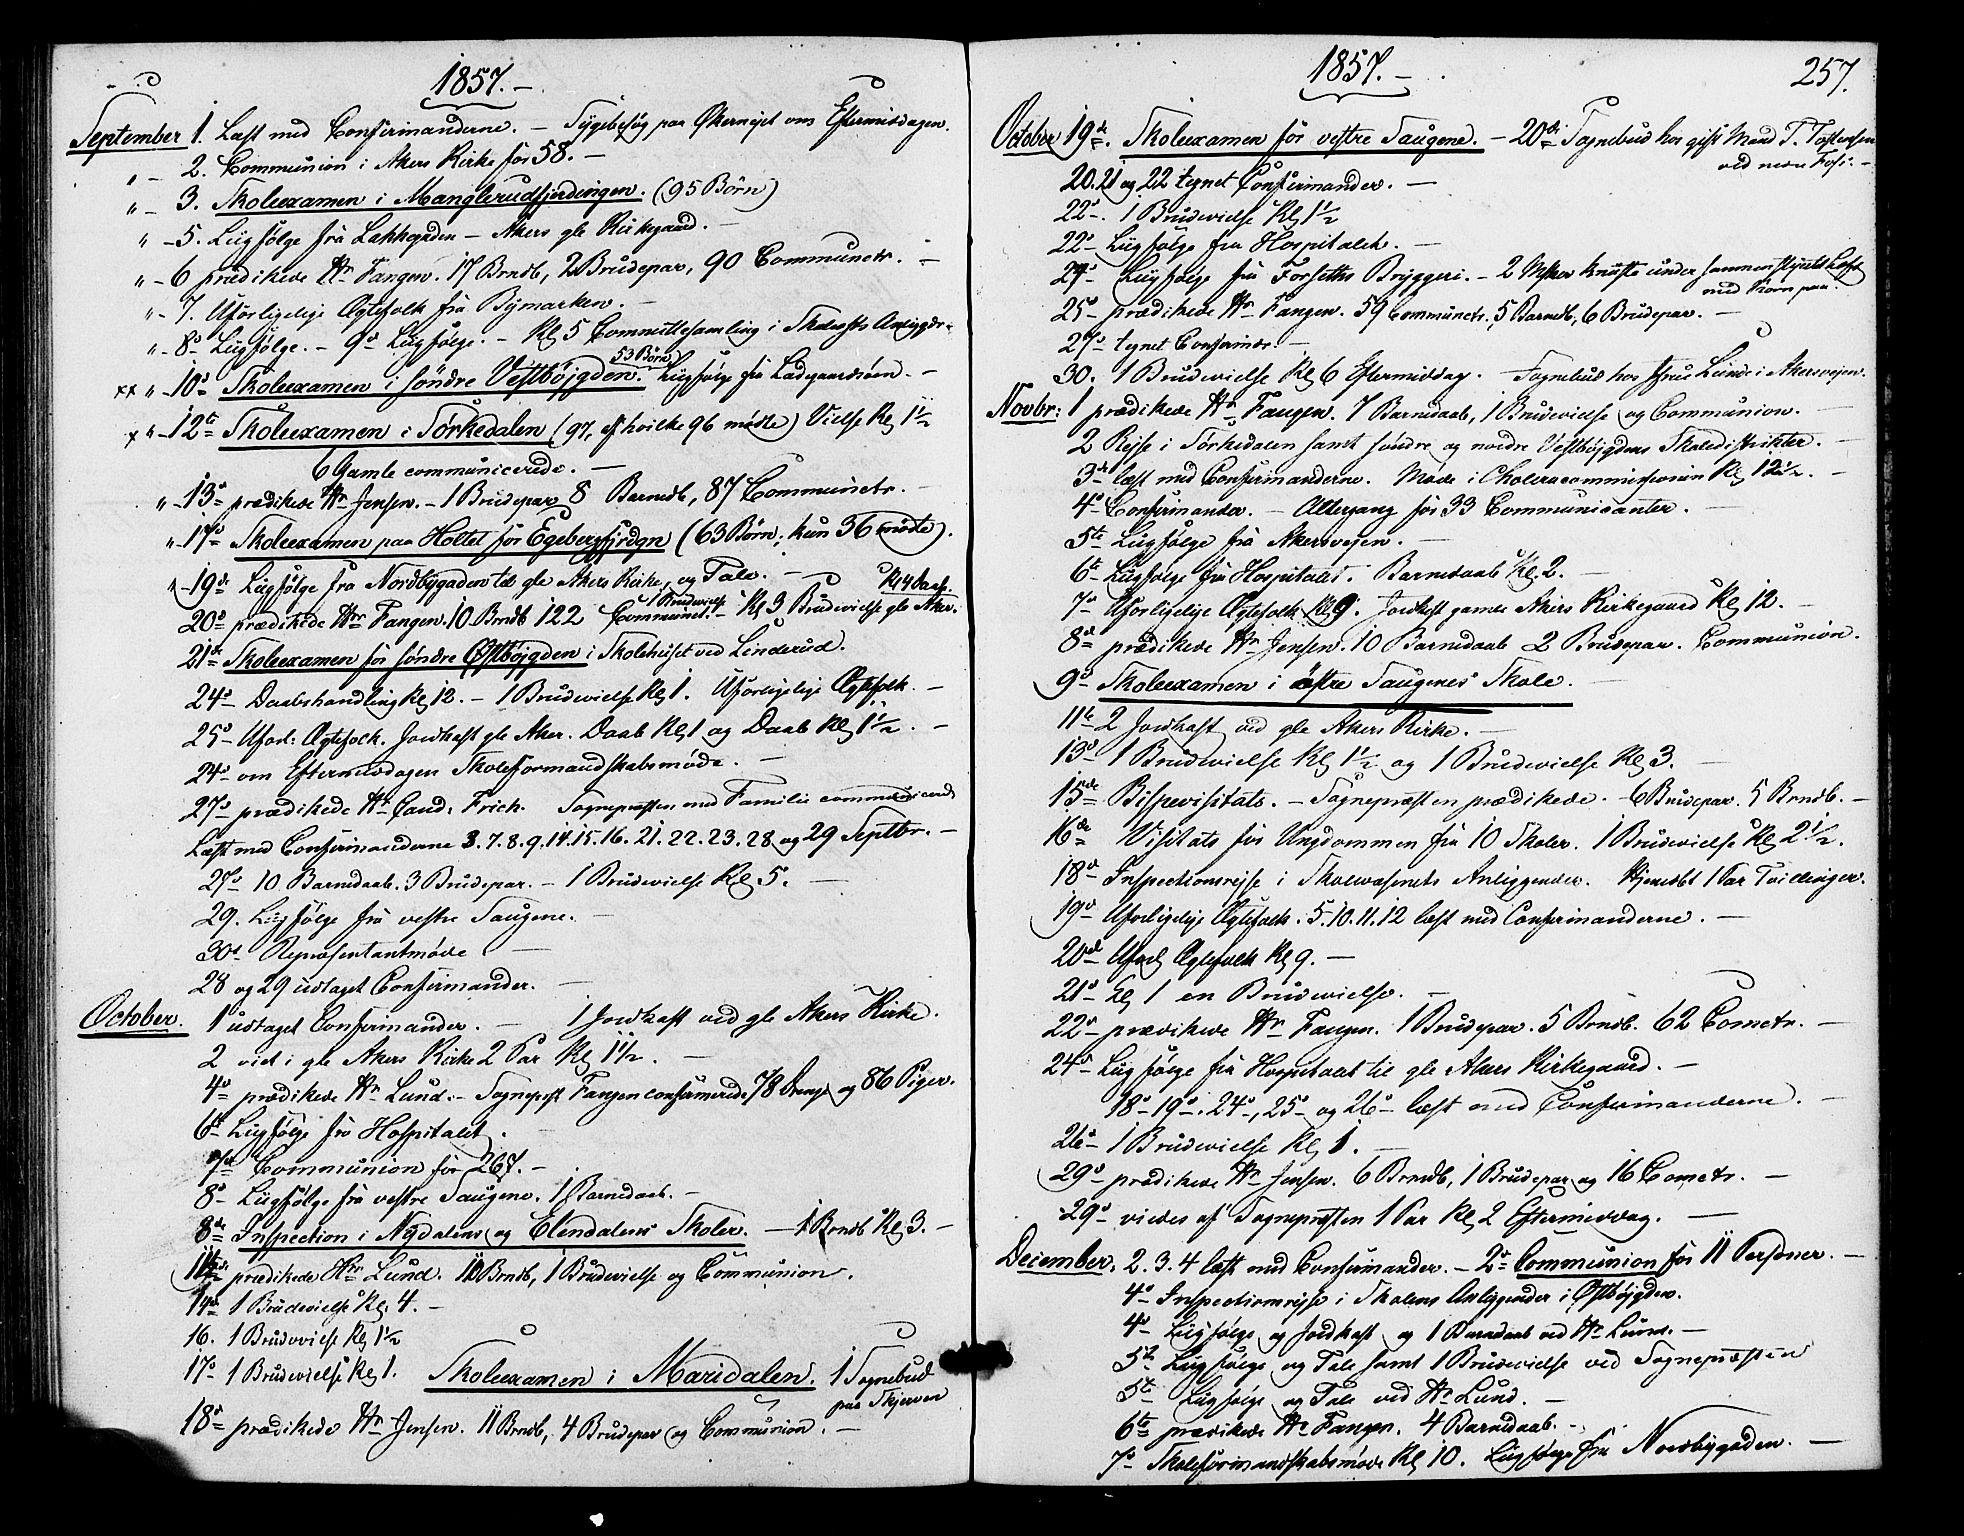 1857. -
September 1. Læst med Confirmanderne. - Sygebesøg paa Økernejet om Eftermiddagen.
" - 2. Communion i Akers Kirke for 58. -
" - 3. Skoleexamen i Manglerudfjerdingen. (95 Børn)
" - 5. Liigfølge fra Lakkegaden - Akers gle Kirkegaard. -
" - 6 prædikede Hr Fangen. 17 Brndb, 2 Brudepar, 90 Communctr. -
" - 7. Uforligelige Ægtefolk fra Bymarken. -
" - 8de Liigfølge. - 9de Liigfølge. - Kl 5 Committesamling i Anliggdr -
xx " - 10de Skoleexamen i søndre Vestbøjgden. 53 Børn Liigfølge fra Ladegaardsøen. -
x " - 12te Skoleexamen i Sørkedalen (97, af hvilke 96 mødte) Vielse Kl 1½
6 Gamle communicerede. -
" - 13de prædikede Hr Jensen. - 1 Brudepar 8 Barnedb, 87 Communctr. -
" - 17de Skoleexamen paa Holtet for Egebergfjrdgn (63 Børn; kun 36 mødte).
" - 19de Liigfølge fra Nordbygaden til gle Akers Kirke, og Tale. - Kl 4 Daab.
20de prædikede Hr Fangen. 10 Brndb 122 Communct. 1 Brudevielse - Kl 3 Brudevielse gle Aker.
21de Skoleexamen for søndre Østbøjgden i Skolehuset ved Linderud.
24de Daabshandling Kl 12. - 1 Brudevielse Kl 1. Uforligelige Ægtefolk. -
25de Uforl: Ægtefolk. Jordkast gle Aker. Daab Kl 1 og Daab Kl 1½. -
24de om Eftermiddagen Skoleformandskabsmøde. -
27de prædikede Hr Cand: Frich. Sognepræsten med Familie communicerede
Læst med Confirmanderne 3. 7. 8. 9. 14. 15. 16. 21. 22. 23. 28 og 29 Septbr. -
27de 10 Barnedaab. 3 Brudepar. - 1 Brudevielse Kl. 5. -
29. Liigfølge fra vestre Saugene. -
30te Repræsentantmøde -
28 og 29 udtaget Confirmander. -
October. 1 udtaget Confirmander. - 1 Jordkast ved gle Akers Kirke.
2 viet i gle Akers Kirke 2 Par Kl 1½. -
4de prædikede Hr Lund. - Sognepst Fangen confirmerede 78 Drenge og 86 Piger.
6te Liigfølge fra Hospitalet.
7de Communion for 267. -
8de Liigfølge fra vestre Saugene. 1 Barnedaab. -
8de Inspection i Nydalens og Elendalens Skoler. - 1 Brndb Kl. 3. -
11te prædikede Hr Lund. 11 Brndb, 1 Brudevielse og Communion.
14de 1 Brudevielse Kl. 4. -
16. 1 Brudevielse Kl 1½
17de 1 Brudevielse Kl 1. Skoleexamen i Maridalen. 1 Sognebud
paa Skjerven
18de prædikede Hr Jensen. 11 Brndb, 4 Brudepar og Communion. -
1857. -
257.
October 19de. Skoleexamen for vestre Saugene. - 20de Sognebud hos gift Mand T. Tostensen
ved nedre Fos. -
20. 21 og 22 tegnet Confirmander. -
22de. 1 Brudevielse Kl 1½
22de Liigfølge fra Hospitalet. -
24de Liigfølge fra Forseths Bryggeri. - 2 knuste under sammenstyrtet Loft
med Korn paa.
25de prædikede Hr Fangen. 59 Communctr, 5 Barnedb, 6 Brudepar. -
27de tegnet Confirmdr. -
30. 1 Brudevielse Kl 6 Eftermiddag. Sognebud hos Frue Lunde i Akersvejen.
Novbr: 1 prædikede Hr Fangen. 7 Barnedaab, 1 Brudevielse og Communion. -
2 Rejse i Sørkedalen samt søndre og nordre Vestbøjgdens Skoledistrikter. -
3de læst med Confirmanderne. Møde i Choleracommissionen Kl 12½. -
4de Confirmander. - Altergang for 33 Communicanter. -
5te Liigfølge fra Akersvejen. -
6te Liigfølge fra Hospitalet. Barnedaab Kl. 2. -
7de Uforligelige Ægtefolk Kl 9. Jordkast gamle Akers Kirkegaard Kl 12. -
8de prædikede Hr Jensen. 10 Barnedaab 2 Brudepar. Communion.
9de Skoleexamen i østre Saugenes Skole. -
11te 2 Jordkast ved gle Akers Kirke. -
13de 1 Brudevielse Kl 1½ og 1 Brudevielse Kl 3. -
15de Bispevisitats. - Sognepræsten prædikede. - 6 Brudepar. 5 Brndb. -
16de Visitats for Ungdommen fra 10 Skoler. 1 Brudevielse Kl 2½.
18de Inspectionsrejse i Skolevæsenets Anliggender. Hjemdbt 1 Par Tvillinger.
19de Uforligelige Ægtefolk. 5. 10. 11. 12 læst med Confirmanderne. -
20de Uforl Ægtefolk Kl 9. -
21de Kl 1 en Brudevielse. -
22de prædikede Hr Fangen. 1 Brudepar. 5 Brndb. 62 Comctr. -
24de Liigfølge fra Hospitalet til gle Akers Kirkegaard. -
18de 19de. 24de, 25de og 26de læst med Confirmanderne. -
26de 1 Brudevielse Kl 1. -
29de prædikede Hr Jensen. 6 Brndb, 1 Brudepar og 16 Comctr. -
29de viedes af Sognepræsten 1 Par Kl 2 Eftermiddag. -
December. 2. 3. 4 læst med Confirmander. - 2de Communion for 11 Personer. -
4de Inspectionsrejse i Skolens Anliggender i Østbøjgden.
4de Liigfølge og Jordkast og 1 Barnedaab ved Hr Lund. -
5te Liigfølge og Tale samt 1 Brudevielse ved Sognepræsten
5te Liigfølge og Tale ved Hr Lund. -
6te prædikede Hr Fangen. 4 Barnedaab. -
7de Skoleformandskabsmøde Kl 10. Liigfølge fra Nordbygaden. -